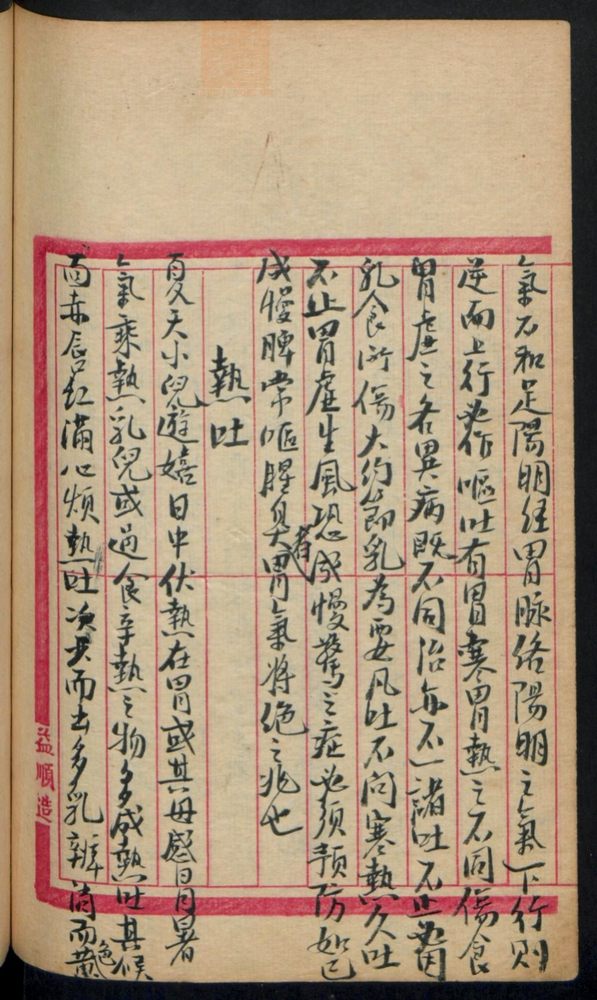 氣不和足陽明經胃脈絡陽明之氣下行則
逆而上行必作嘔吐有胃寒胃熱之不同傷食
胃虛之各異病既不同治亦不一諸吐不止必因
乳食所傷大約節乳為要凡吐不問寒熱久吐
不止胃虛生風恐成慢驚之症必須預防如已
成慢脾常嘔腥臭者胃氣將絕之兆也
熱吐
夏天小兒遊嬉日中伏熱在胃或其母感冒暑
氣乘熱乳兒或過食辛熱之物多成熱吐其候
面赤唇紅滿心煩熱吐次少而出多乳辦消而色黃
益順造